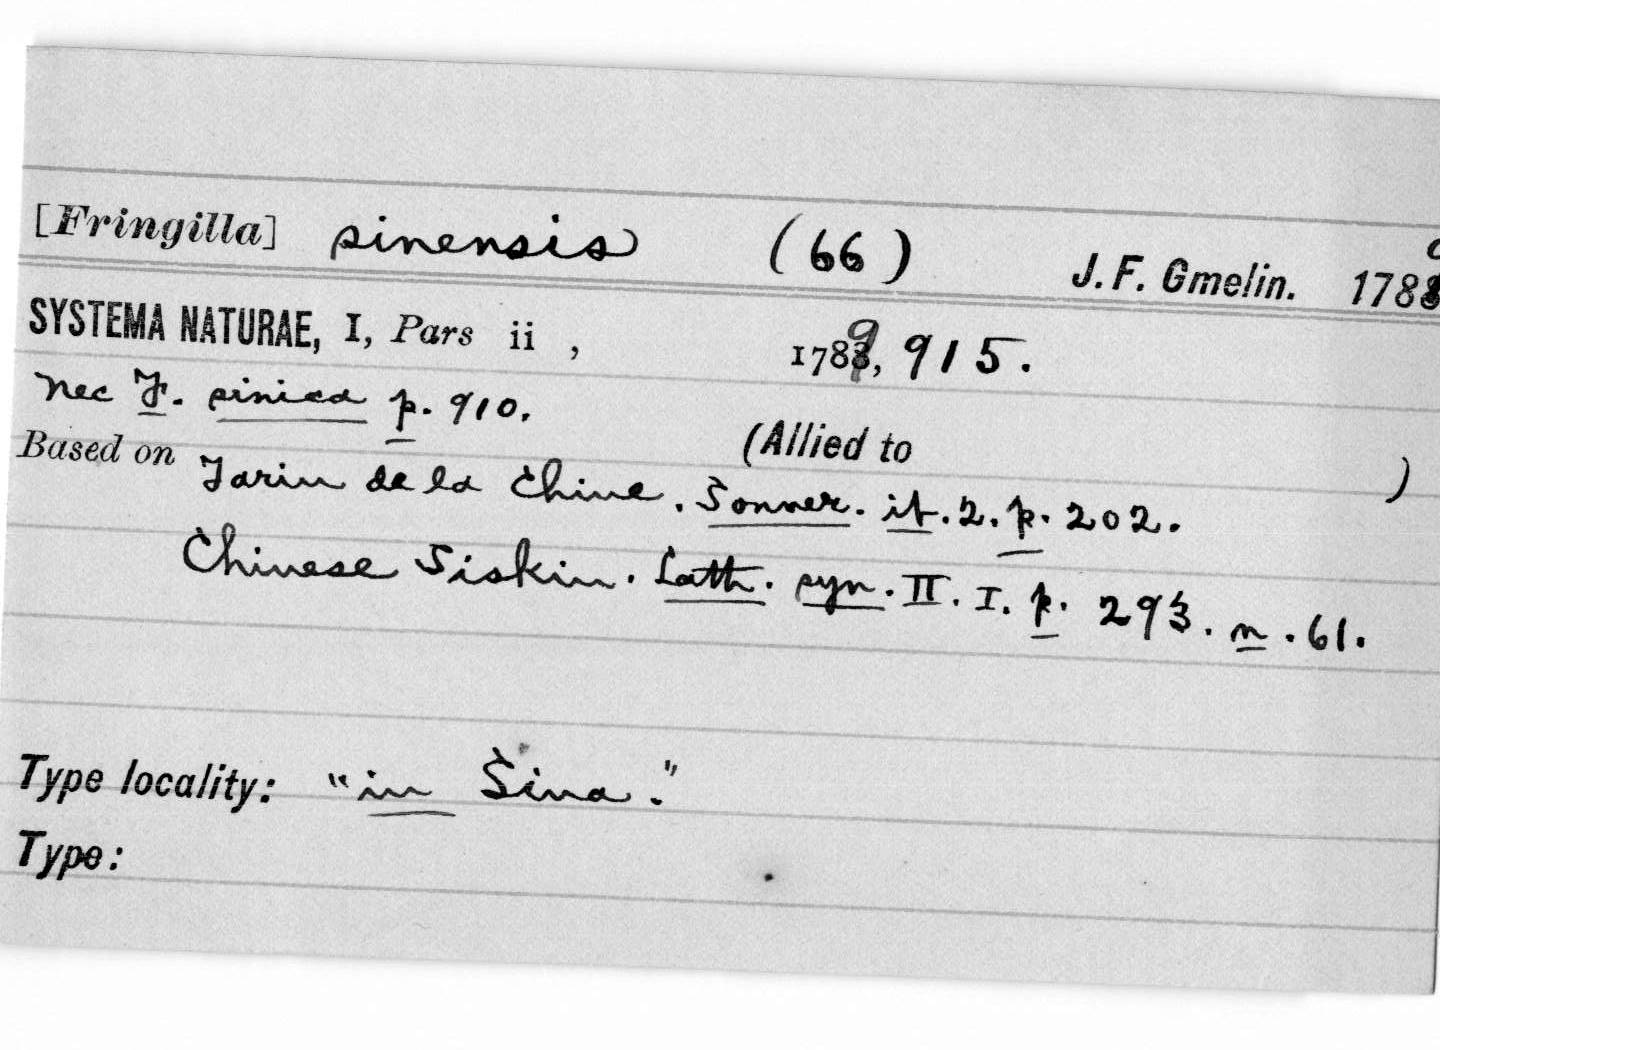 [Fringilla] sinensis (66) J. F. Gmelin. 1788
SYSTEMA NATURAE, I, Pars ii , 1789, 915.
nec F. sinica p. 910.
Based on (Allied to )
Tarin de la Chine. Sonner. it. 2. p. 202.
Chinese Siskin. Lath. syn. II. I. p. 293. n. 61.
Type locality: "in Sina."
Type: